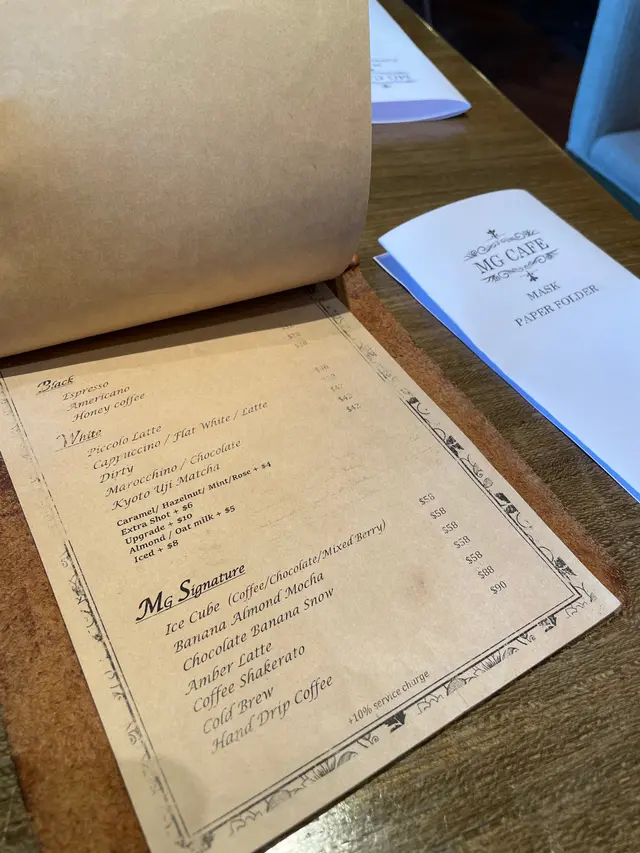 Black
Espresso
Americano
Honey coffee
White
Piccolo Latte
Cappuccino / Flat White / Latte
Dirty
Marocchino / Chocolate
Kyoto Uji Matcha
$42
$42
Caramel/ Hazelnut/ Mint/Rose + $4
Extra Shot + $6
Upgrade + $10
Almond / Oat milk + $5
Iced + $8
MG Signature
Ice Cube (Coffee/Chocolate/Mixed Berry) $56
Banana Almond Mocha $58
Chocolate Banana Snow $58
Amber Latte $58
Coffee Shakerato $58
Cold Brew $88
Hand Drip Coffee $90
+10% service charge
MG CAFE
MASK
PAPER FOLDER